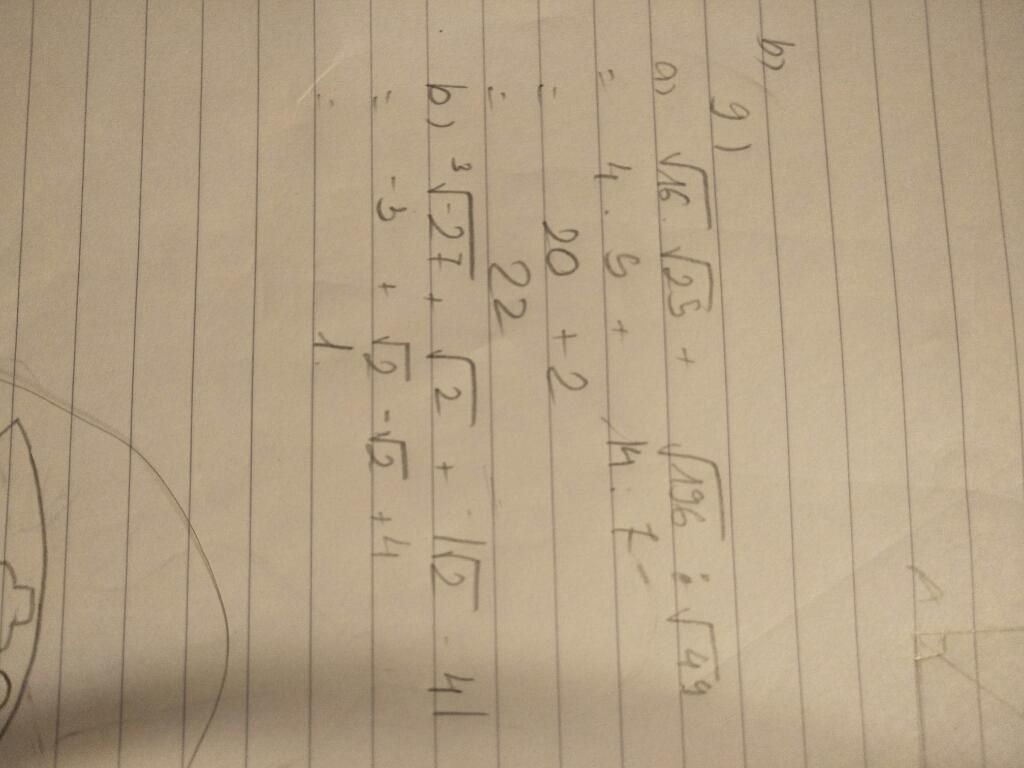 b)
9)
a) √16 . √25 + √196 : √49
= 4 . 5 + 14 : 7
= 20 + 2
= 22
b) ³√-27 + √2 + |√2 - 4|
= -3 + √2 - √2 + 4
= 1